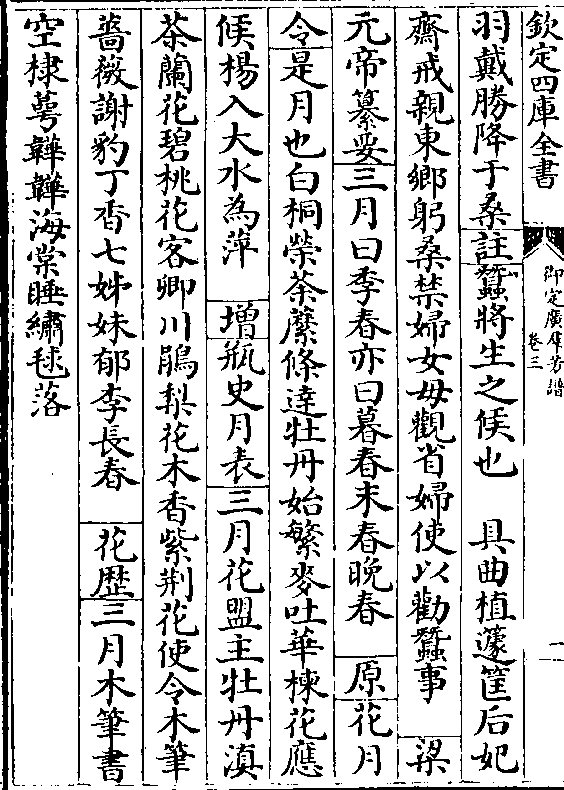 欽定四庫全書
御定廣羣芳譜
卷三
一
羽戴勝降于桑註蠶將生之候也　具曲植籧筐后妃
齋戒親東鄉躬桑禁婦女毋觀省婦使以勸蠶事　梁
元帝纂要三月曰季春亦曰暮春末春晚春　原花月
令是月也白桐榮荼蘼條達牡丹始繁麥吐華楝花應
候楊入大水為萍　增瓶史月表三月花盟主牡丹滇
茶蘭花碧桃花客卿川鵑梨花木香紫荆花使令木筆
薔薇謝豹丁香七姊妹郁李長春　花歴三月木筆書
空棣萼韡韡海棠睡繡毬落